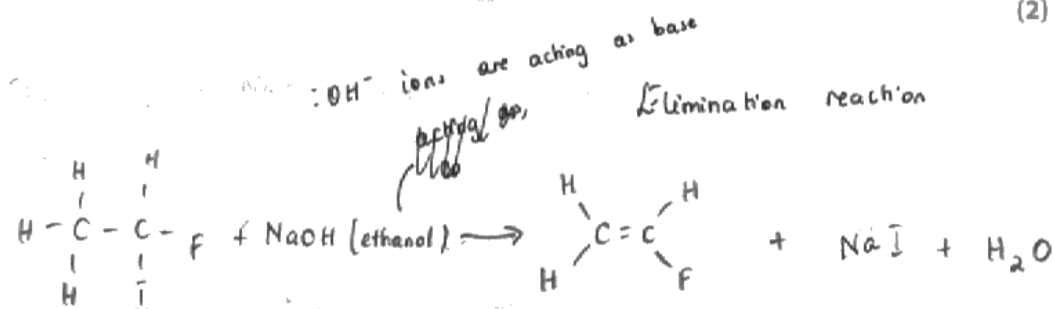 (2)
:OH⁻ ions are acting as base
Elimination reaction
H H
H - C - C - F + NaOH (ethanol) → H H C = C H F + NaI + H₂O
H I